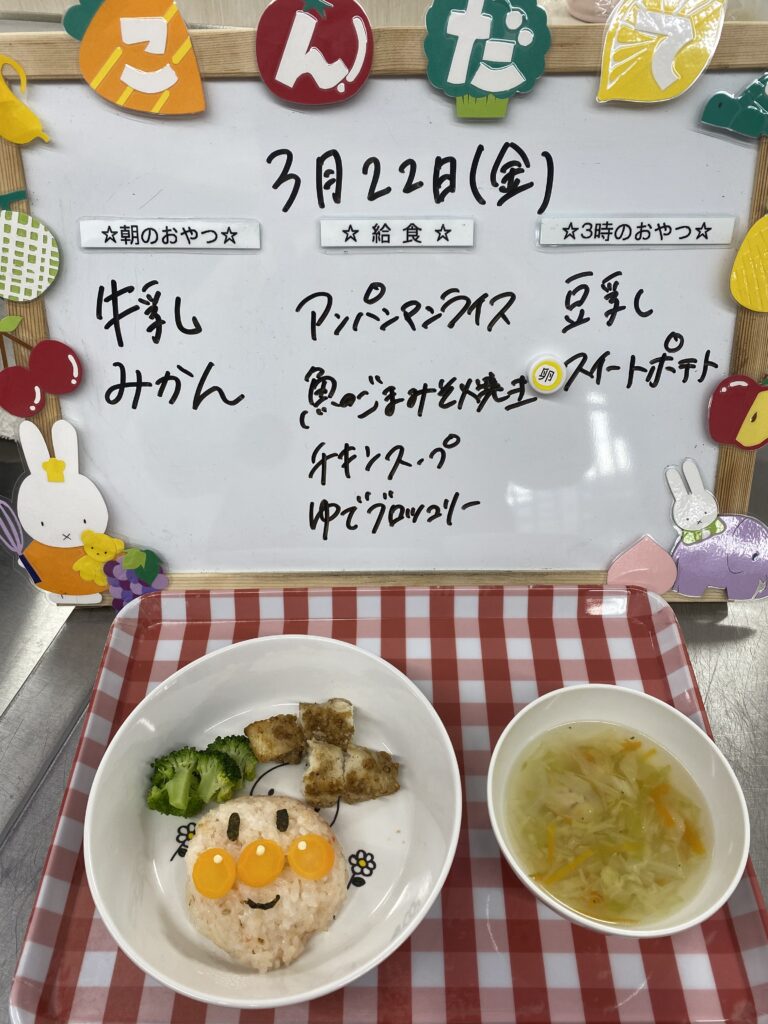 こんだて
3月22日(金)
☆朝のおやつ☆
牛乳
みかん
☆ 給 食 ☆
アンパンマンライス
魚のごまみそ焼き
チキンスープ
ゆでブロッコリー
☆3時のおやつ☆
豆乳
卵 スイートポテト